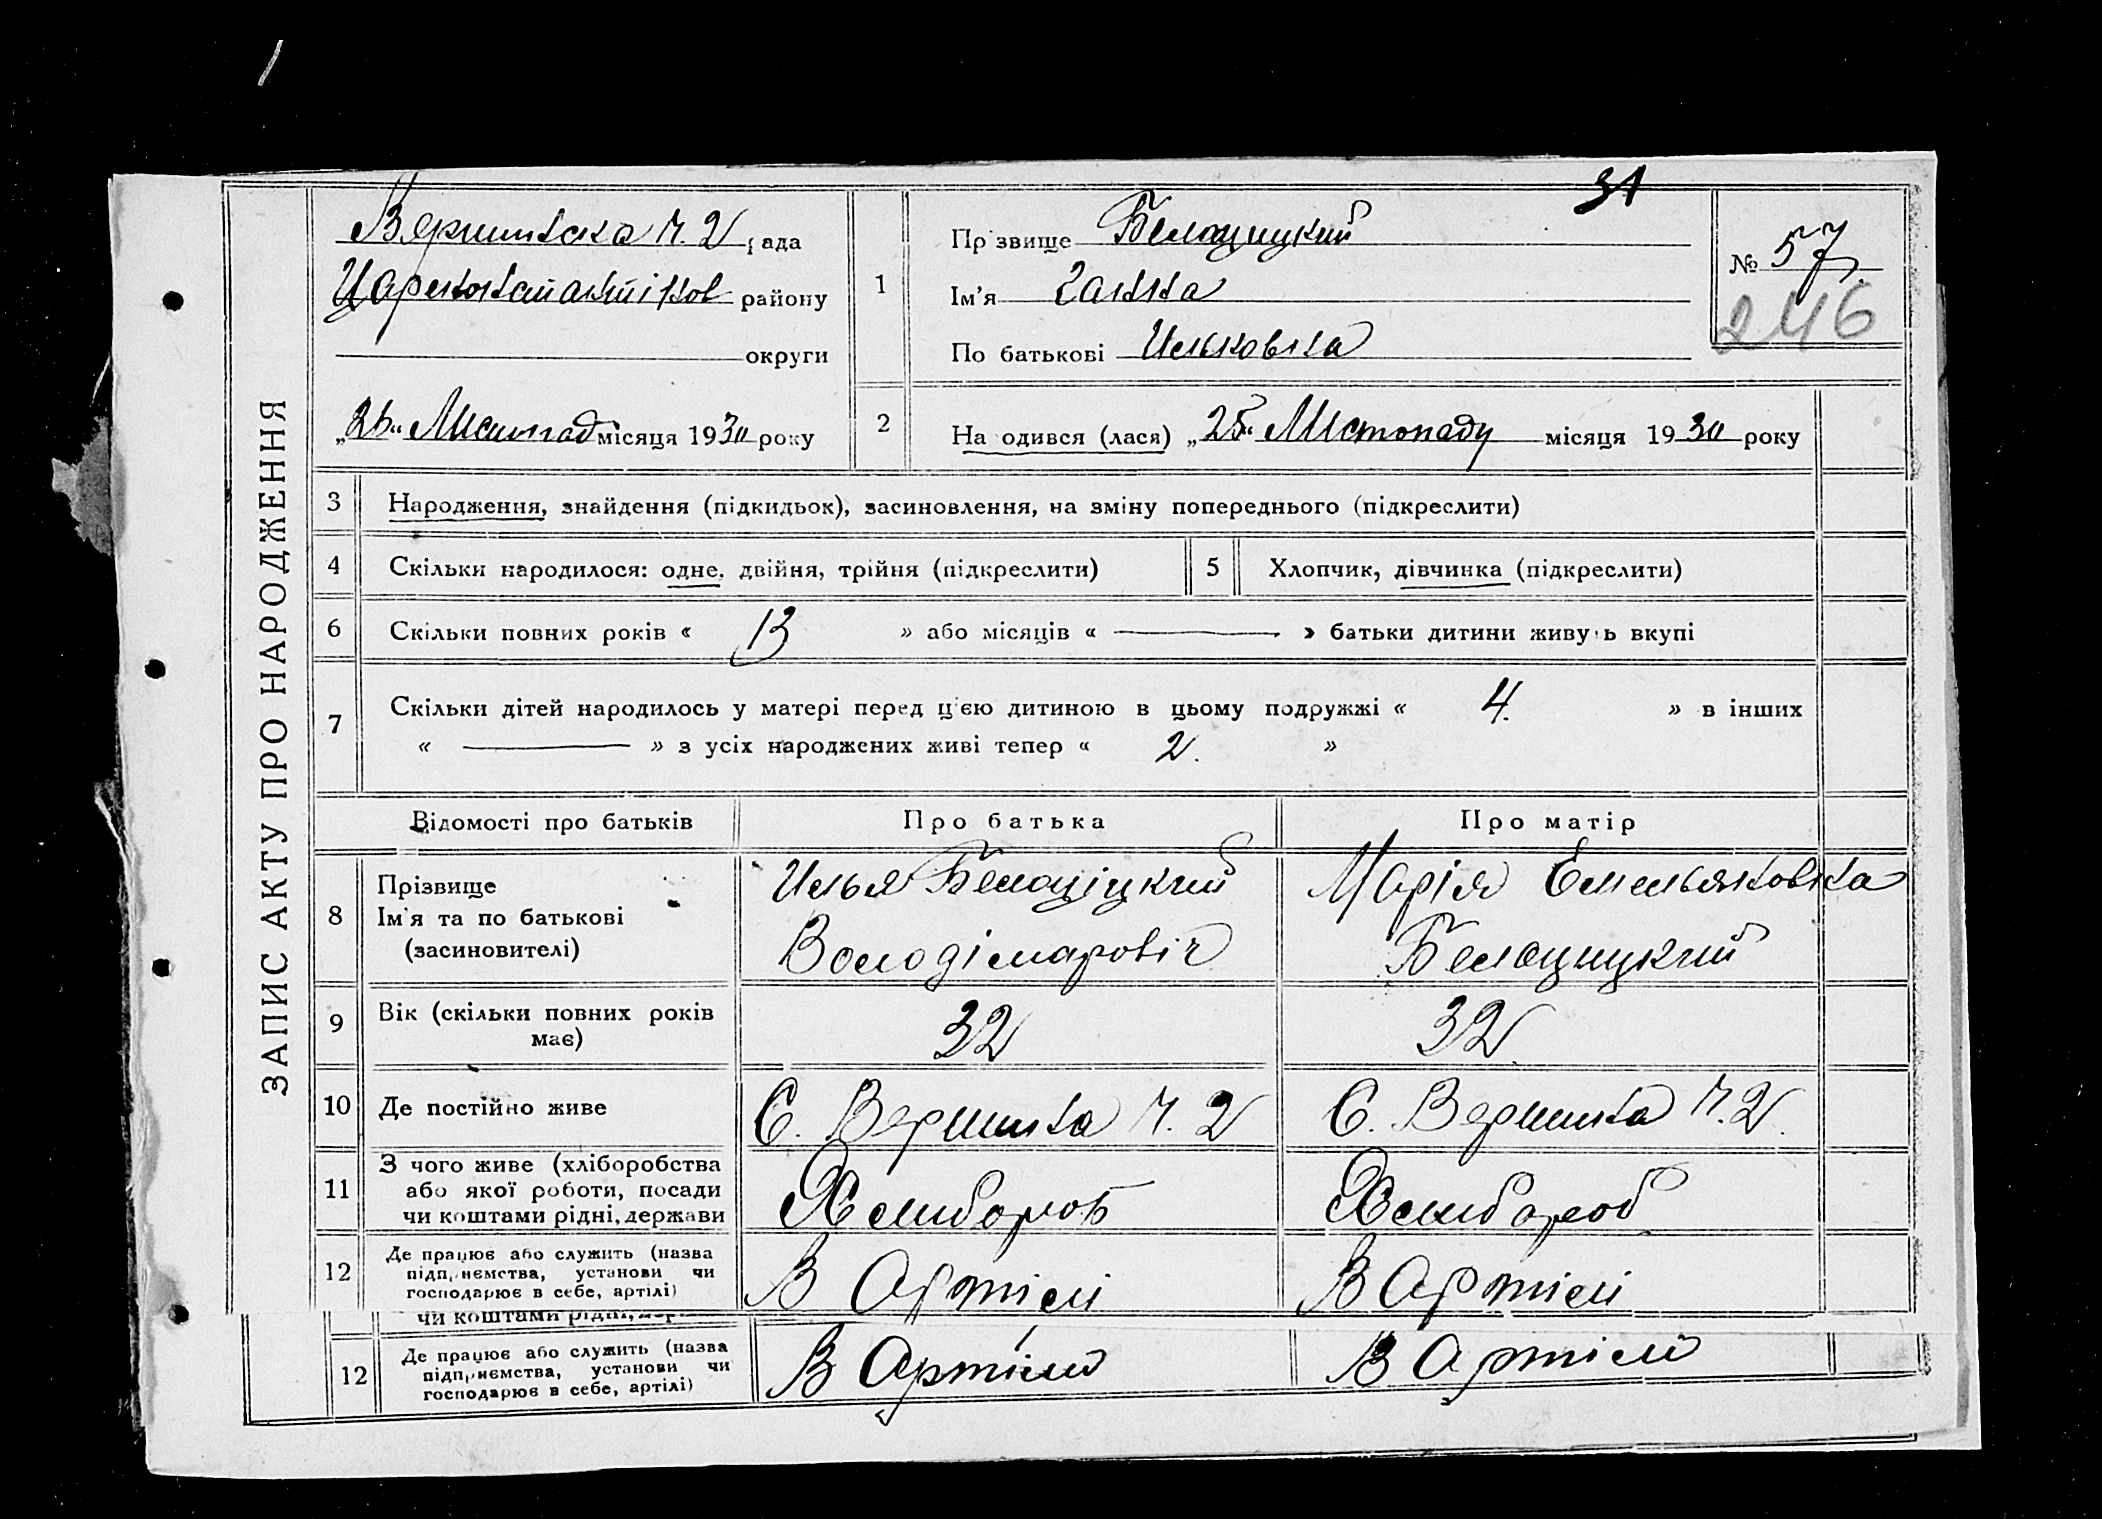 31
ЗАПИС АКТУ ПРО НАРОДЖЕННЯ
Вершинска ч. 2 рада
Царичанський району
округи
„26“ Листопад місяця 1930 року
1
Прізвище Белоцицкий
Ім’я Ганна
По батькові Ильковна
№ 57
246
2
Народився (лася) „25“ Листопаду місяця 1930 року
3 Народження, знайдення (підкидьок), засиновлення, на зміну попереднього (підкреслити)
4 Скільки народилося: одне, двійня, трійня (підкреслити) 5 Хлопчик, дівчинка (підкреслити)
6 Скільки повних років « 13 » або місяців « — » батьки дитини живуть вкупі
7 Скільки дітей народилось у матері перед цією дитиною в цьому подружжі « 4. » в інших
« — » з усіх народжених живі тепер « 2. »
Відомості про батьків Про батька Про матір
8 Прізвище
Ім’я та по батькові
(засиновителі)
Илья Белоціцкий
Володімаровіч
Марія Емельяновна
Белоцицкий
9 Вік (скільки повних років
має)
32 32
10 Де постійно живе С. Вершина ч. 2 С. Вершина ч. 2
11 З чого живе (хліборобства
або якої роботи, посади
чи коштами рідні, держави
Хлибороб Хлибороб
12 Де працює або служить (назва
підприємства, установи чи
господарює в себе, артілі)
В Артілі В Артілі
чи коштами рідні,
12 Де працює або служить (назва
підприємства, установи чи
господарює в себе, артілі)
В Артілі В Артілі